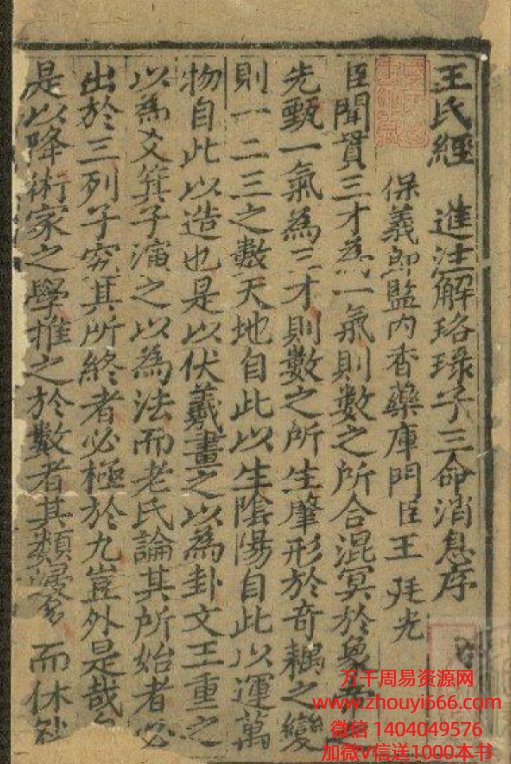 王氏經 進注解珞琭子三命消息序
保義郎監内香藥庫門臣王 廷光
臣聞貫三才為一氣則數之所合混冥於象
先甄一氣為三才則數之所生肇形於竒耦之變
則一二三之數天地自此以生陰陽自此以運萬
物自此以造也是以伏羲畫之以為卦文王重之
以為爻箕子演之以為法而老氏論其所始者必
出於三列子究其所終者必極於九豈外是哉
是以降術家之學推之於數者其類寖 而休
万千周易资源网
www.zhouyi666.com
微信 1404049576
加微V信送1000本书